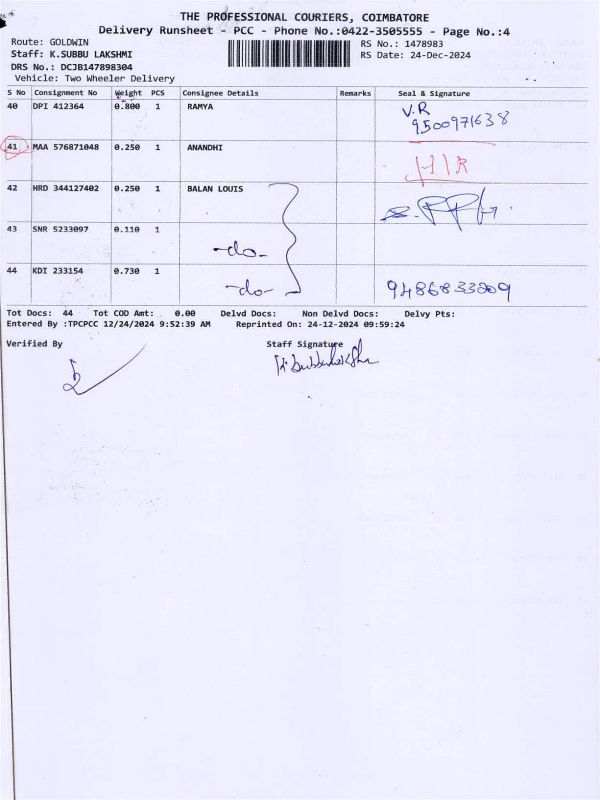 THE PROFESSIONAL COURIERS, COIMBATORE
Delivery Runsheet - PCC - Phone No.:0422-3505555 - Page No.:4
Route: GOLDWIN
RS No.: 1478983
Staff: K.SUBBU LAKSHMI
RS Date: 24-Dec-2024
DRS No.: DCJB147898304
Vehicle: Two Wheeler Delivery
S No Consignment No Weight PCS Consignee Details Remarks Seal & Signature
40 DPI 412364 0.800 1 RAMYA V.R
9500971638
41 MAA 576871048 0.250 1 ANANDHI
42 HRD 344127402 0.250 1 BALAN LOUIS
43 SNR 5233097 0.110 1 -do-
44 KDI 233154 0.730 1 -do- 9486833209
Tot Docs: 44 Tot COD Amt: 0.00 Delvd Docs: Non Delvd Docs: Delvy Pts:
Entered By :TPCPCC 12/24/2024 9:52:39 AM Reprinted On: 24-12-2024 09:59:24
Verified By Staff Signature